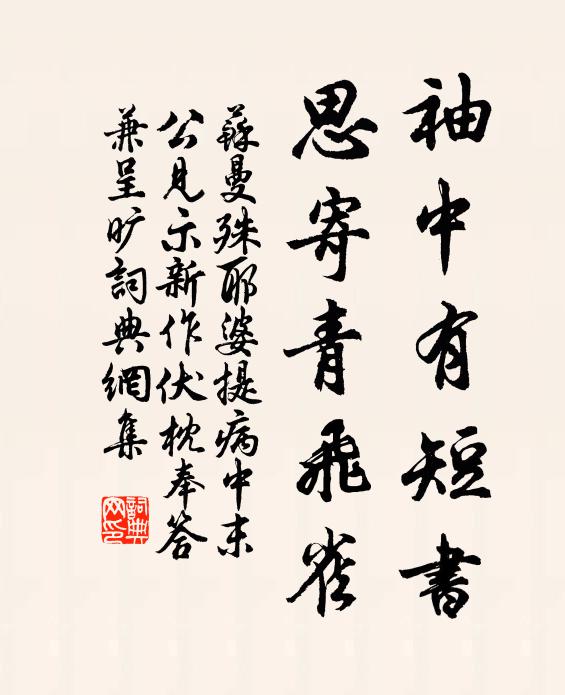 袖中有短書
思寄青飛雀
蘇曼殊耶婆提病中末
公見示新作伏枕奉答
兼呈旷詞典網集
詞典網印